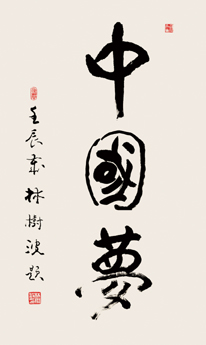 中國夢
壬辰年林樹波題